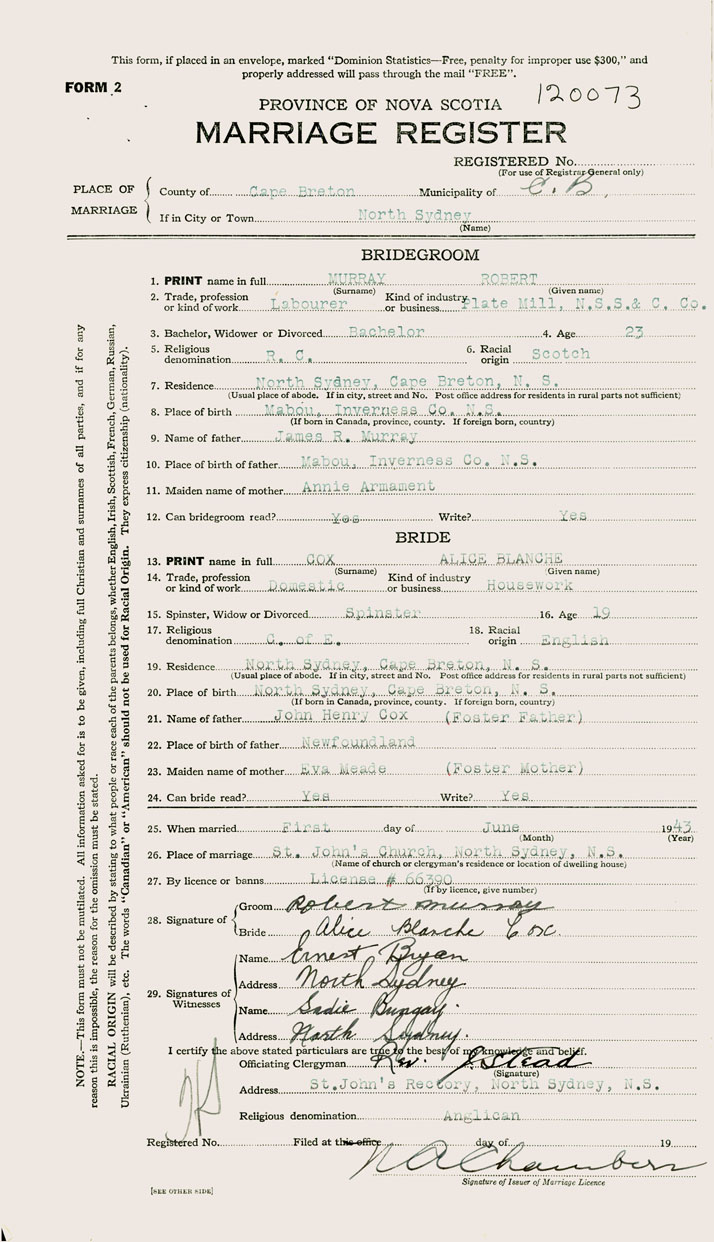 This form, if placed in an envelope, marked "Dominion Statistics—Free, penalty for improper use $300," and
properly addressed will pass through the mail "FREE".
FORM 2
120073
PROVINCE OF NOVA SCOTIA
MARRIAGE REGISTER
REGISTERED No.
(For use of Registrar General only)
PLACE OF MARRIAGE
County of Cape Breton Municipality of C. B.
If in City or Town North Sydney
(Name)
BRIDEGROOM
1. PRINT name in full MURRAY ROBERT
(Surname) (Given name)
2. Trade, profession or kind of work Labourer Kind of industry or business Plate Mill, N.S.S.& C. Co.
3. Bachelor, Widower or Divorced Bachelor 4. Age 23
5. Religious denomination R. C. 6. Racial origin Scotch
7. Residence North Sydney, Cape Breton, N. S.
(Usual place of abode. If in city, street and No. Post office address for residents in rural parts not sufficient)
8. Place of birth Mabou, Inverness Co. N.S.
(If born in Canada, province, county. If foreign born, country)
9. Name of father James R. Murray
10. Place of birth of father Mabou, Inverness Co. N.S.
11. Maiden name of mother Annie Armament
12. Can bridegroom read? Yes Write? Yes
BRIDE
13. PRINT name in full COX ALICE BLANCHE
(Surname) (Given name)
14. Trade, profession or kind of work Domestic Kind of industry or business Housework
15. Spinster, Widow or Divorced Spinster 16. Age 19
17. Religious denomination C. of E. 18. Racial origin English
19. Residence North Sydney, Cape Breton, N. S.
(Usual place of abode. If in city, street and No. Post office address for residents in rural parts not sufficient)
20. Place of birth North Sydney, Cape Breton, N. S.
(If born in Canada, province, county. If foreign born, country)
21. Name of father John Henry Cox (Foster Father)
22. Place of birth of father Newfoundland
23. Maiden name of mother Eva Meade (Foster Mother)
24. Can bride read? Yes Write? Yes
25. When married First day of June 1943
(Month) (Year)
26. Place of marriage St. John's Church, North Sydney, N.S.
(Name of church or clergyman's residence or location of dwelling house)
27. By licence or banns License # 66390
(If by licence, give number)
28. Signature of
Groom Robert Murray
Bride Alice Blanche Cox.
29. Signatures of Witnesses
Name Ernest Bryan
Address North Sydney
Name Sadie Bungay.
Address North Sydney.
I certify the above stated particulars are true to the best of my knowledge and belief.
Officiating Clergyman Rev. J. Stead
(Signature)
Address St.John's Rectory, North Sydney, N.S.
Religious denomination Anglican
Registered No. Filed at this office day of 19
N A Chambers
Signature of Issuer of Marriage Licence
[SEE OTHER SIDE]
NOTE.—This form must not be mutilated. All information asked for is to be given, including full Christian and surnames of all parties, and if for any
reason this is impossible, the reason for the omission must be stated.
RACIAL ORIGIN will be described by stating to what people or race each of the parents belongs, whether English, Irish, Scottish, French, German, Russian,
Ukrainian (Ruthenian), etc. The words "Canadian" or "American" should not be used for Racial Origin. They express citizenship (nationality).